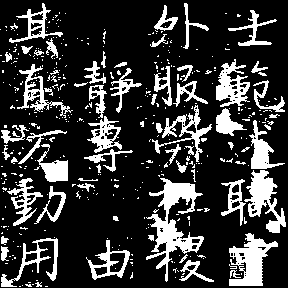 士範之職
外服勞社稷
靜專由
其直方動用